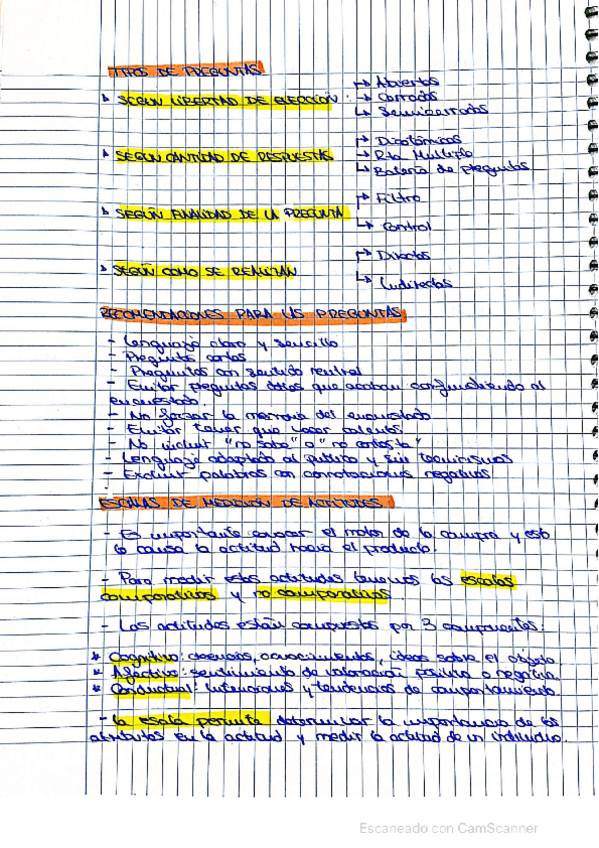 TIPOS DE PREGUNTAS
→ Abiertas
SEGÚN LIBERTAD DE ELECCIÓN : → Cerradas
→ Semicerradas
→ Dicotómicas
SEGÚN CANTIDAD DE RESPUESTAS → Rta Multiple
→ Batería de preguntas
→ Filtro
SEGÚN FINALIDAD DE LA PREGUNTA
→ Control
→ Directas
SEGÚN COMO SE REALIZAN
→ Indirectas
RECOMENDACIONES PARA LAS PREGUNTAS
- Lenguaje claro y sencillo
- Preguntas cortas
- Preguntas con sentido neutral
- Evitar preguntas que acaban al
encuestado.
- No forzar la memoria del encuestado
- Evitar tener que hacer calculos.
- No incluir "no sabe" o "no contesta"
- Lenguaje adaptado al publico y sin tecnicismos
- Excluir palabras con connotaciones negativas
ESCALAS DE MEDICIÓN DE ACTITUDES
- Es importante conocer el motor de la compra y esto
lo causa la actitud hacia el producto.
- Para medir estas actitudes tenemos las escalas
comparativas y no comparativas
- Las actitudes están compuestas por 3 componentes:
* Cognitivo: creencias, conocimientos, ideas sobre el objeto
* Afectivo: sentimiento de valoración positiva o negativa.
* Conductual: intenciones y tendencias de comportamiento
- la escala permite determinar la importancia de los
atributos en la actitud y medir la actitud de un individuo.
Escaneado con CamScanner